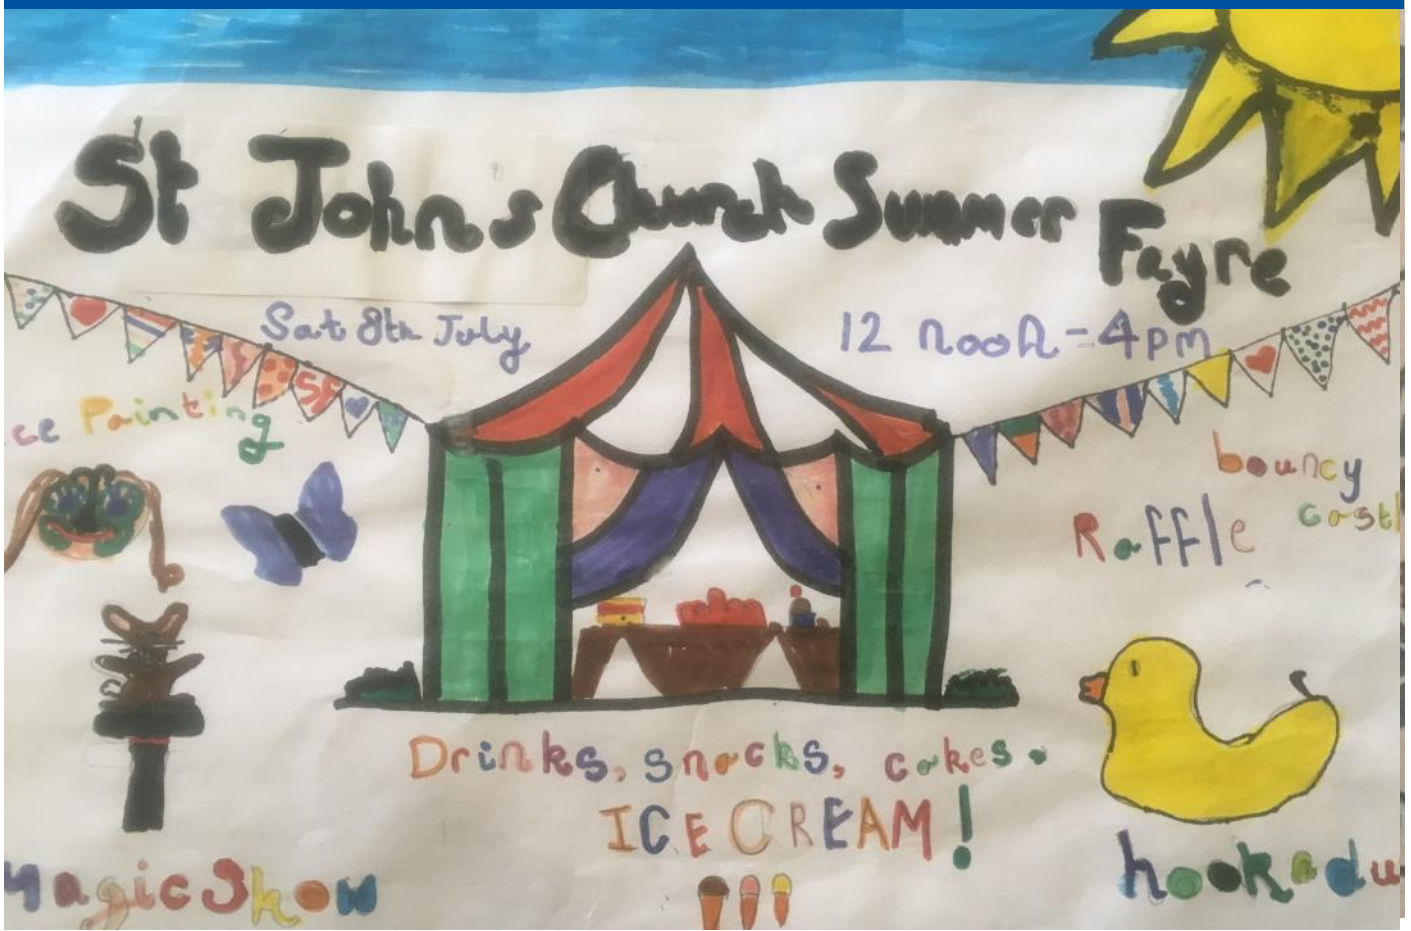 St Johns Church Summer Fayre
Sat 8th July
12 noon - 4pm
ce Painting
SF
bouncy
castl
Raffle
Drinks, snacks, cakes.
ICE CREAM!
magic Show
hook a du